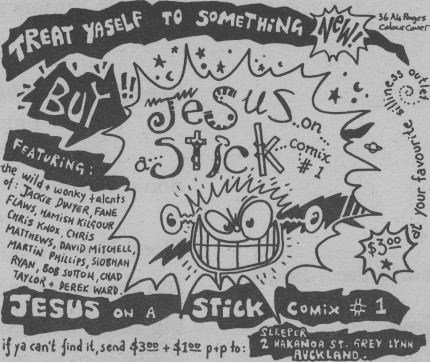 TREAT YASELF TO SOMETHING
NEW!
36 A4 Pages
Colour Cover
BUY!!
JESUS
...on...
a... STICK
comix
# 1
at your favourite silliness outlet
FEATURING:
the wild + wonky talents
of: JACKIE DWYER, FANE
FLAWS, HAMISH KILGOUR
CHRIS KNOX, CHRIS
MATTHEWS, DAVID MITCHELL,
MARTIN PHILLIPS, SIOBHAN
RYAN, BOB SUTTON, CHAD
TAYLOR + DEREK WARD.
$3.00
JESUS ON A STICK COMIX # 1
if ya can't find it, send $3.00 + $1.00 p+p to:
SLEEPER
2 HAKANOA ST. GREY LYNN
AUCKLAND.